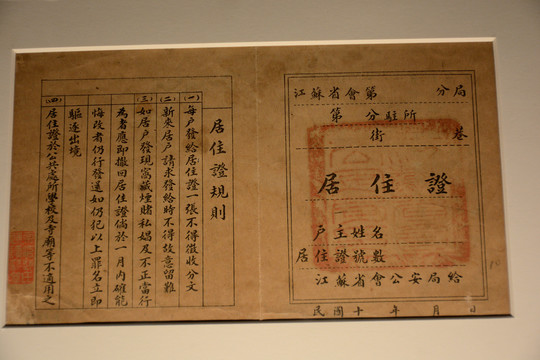 江蘇省會第 分局
第 分駐所
街 巷
居住證
戶主姓名
居住證號數
江蘇省會公安局給
民國十 年 月 日
居住證規則
(一) 每戶發給居住證一張不得徵收分文
(二) 新來居戶請求發給時不得故意留難
(三) 如居戶發現窩藏煙賭私娼及不正當行
為者應即撤回居住證倘於一月內確能
悔改者仍行發還如仍犯以上罪名立即
驅逐出境
(四) 居住證於公共處所學校及寺廟等不適用之